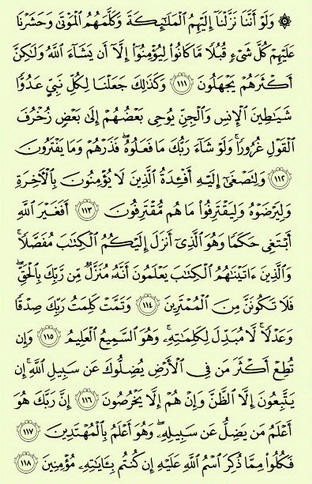 ۞ وَلَوْ أَنَّنَا نَزَّلْنَا إِلَيْهِمُ الْمَلَٰٓئِكَةَ وَكَلَّمَهُمُ الْمَوْتَىٰ وَحَشَرْنَا
عَلَيْهِمْ كُلَّ شَىْءٍ قُبُلًا مَّا كَانُوا۟ لِيُؤْمِنُوٓا۟ إِلَّآ أَن يَشَآءَ اللَّهُ وَلَٰكِنَّ
أَكْثَرَهُمْ يَجْهَلُونَ ۝١١١ وَكَذَٰلِكَ جَعَلْنَا لِكُلِّ نَبِىٍّ عَدُوًّا
شَيَٰطِينَ الْإِنسِ وَالْجِنِّ يُوحِى بَعْضُهُمْ إِلَىٰ بَعْضٍ زُخْرُفَ
الْقَوْلِ غُرُورًا ۚ وَلَوْ شَآءَ رَبُّكَ مَا فَعَلُوهُ ۖ فَذَرْهُمْ وَمَا يَفْتَرُونَ
۝١١٢ وَلِتَصْغَىٰٓ إِلَيْهِ أَفْـِٔدَةُ الَّذِينَ لَا يُؤْمِنُونَ بِالْءَاخِرَةِ
وَلِيَرْضَوْهُ وَلِيَقْتَرِفُوا۟ مَا هُم مُّقْتَرِفُونَ ۝١١٣ أَفَغَيْرَ اللَّهِ
أَبْتَغِى حَكَمًا وَهُوَ الَّذِىٓ أَنزَلَ إِلَيْكُمُ الْكِتَٰبَ مُفَصَّلًا ۚ
وَالَّذِينَ ءَاتَيْنَٰهُمُ الْكِتَٰبَ يَعْلَمُونَ أَنَّهُۥ مُنَزَّلٌ مِّن رَّبِّكَ بِالْحَقِّ ۖ
فَلَا تَكُونَنَّ مِنَ الْمُمْتَرِينَ ۝١١٤ وَتَمَّتْ كَلِمَتُ رَبِّكَ صِدْقًا
وَعَدْلًا ۚ لَّا مُبَدِّلَ لِكَلِمَٰتِهِۦ ۚ وَهُوَ السَّمِيعُ الْعَلِيمُ ۝١١٥ وَإِن
تُطِعْ أَكْثَرَ مَن فِى الْأَرْضِ يُضِلُّوكَ عَن سَبِيلِ اللَّهِ ۚ إِن
يَتَّبِعُونَ إِلَّا الظَّنَّ وَإِنْ هُمْ إِلَّا يَخْرُصُونَ ۝١١٦ إِنَّ رَبَّكَ هُوَ
أَعْلَمُ مَن يَضِلُّ عَن سَبِيلِهِۦ ۖ وَهُوَ أَعْلَمُ بِالْمُهْتَدِينَ
۝١١٧
فَكُلُوا۟ مِمَّا ذُكِرَ اسْمُ اللَّهِ عَلَيْهِ إِن كُنتُم بِـَٔايَٰتِهِۦ مُؤْمِنِينَ ۝١١٨